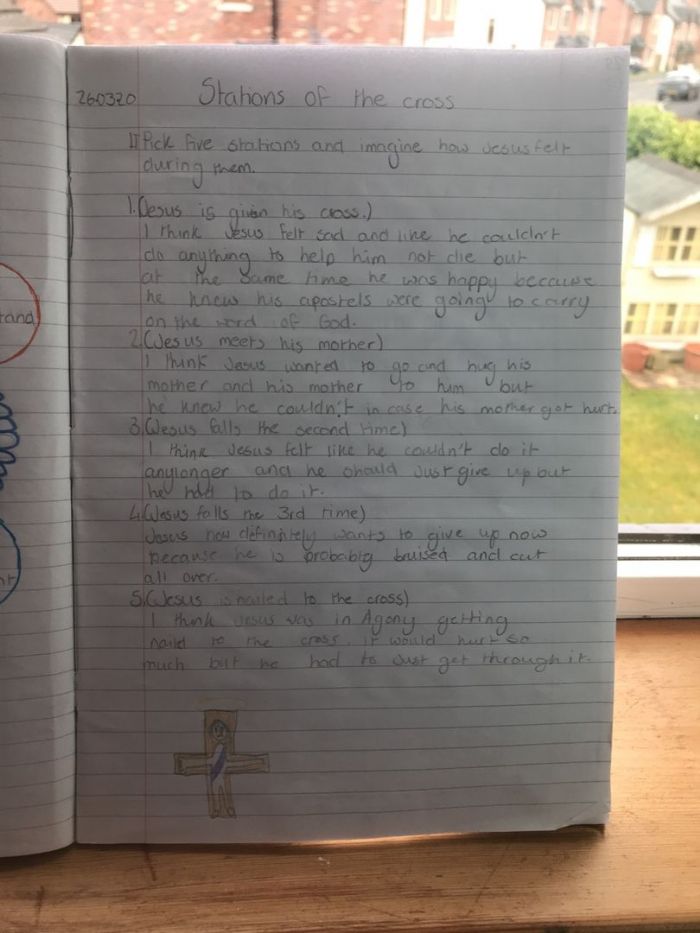 260320 Stations of the cross
I Pick five stations and imagine how Jesus felt
during them.
1. (Jesus is given his cross.)
I think Jesus felt sad and like he couldn't
do anything to help him not die but
at the same time he was happy because
he knew his apostels were going to carry
on the word of God.
2. (Jesus meets his mother)
I think Jesus wanted to go and hug his
mother and his mother to him but
he knew he couldn't in case his mother got hurt.
3. (Jesus falls the second time)
I think Jesus felt like he couldn't do it
anylonger and he should just give up but
he had to do it.
4. (Jesus falls the 3rd time)
Jesus now definitely wants to give up now
because he is probably bruised and cut
all over.
5. (Jesus is nailed to the cross)
I think Jesus was in Agony getting
naild to the cross it would hurt so
much but he had to just get through it.